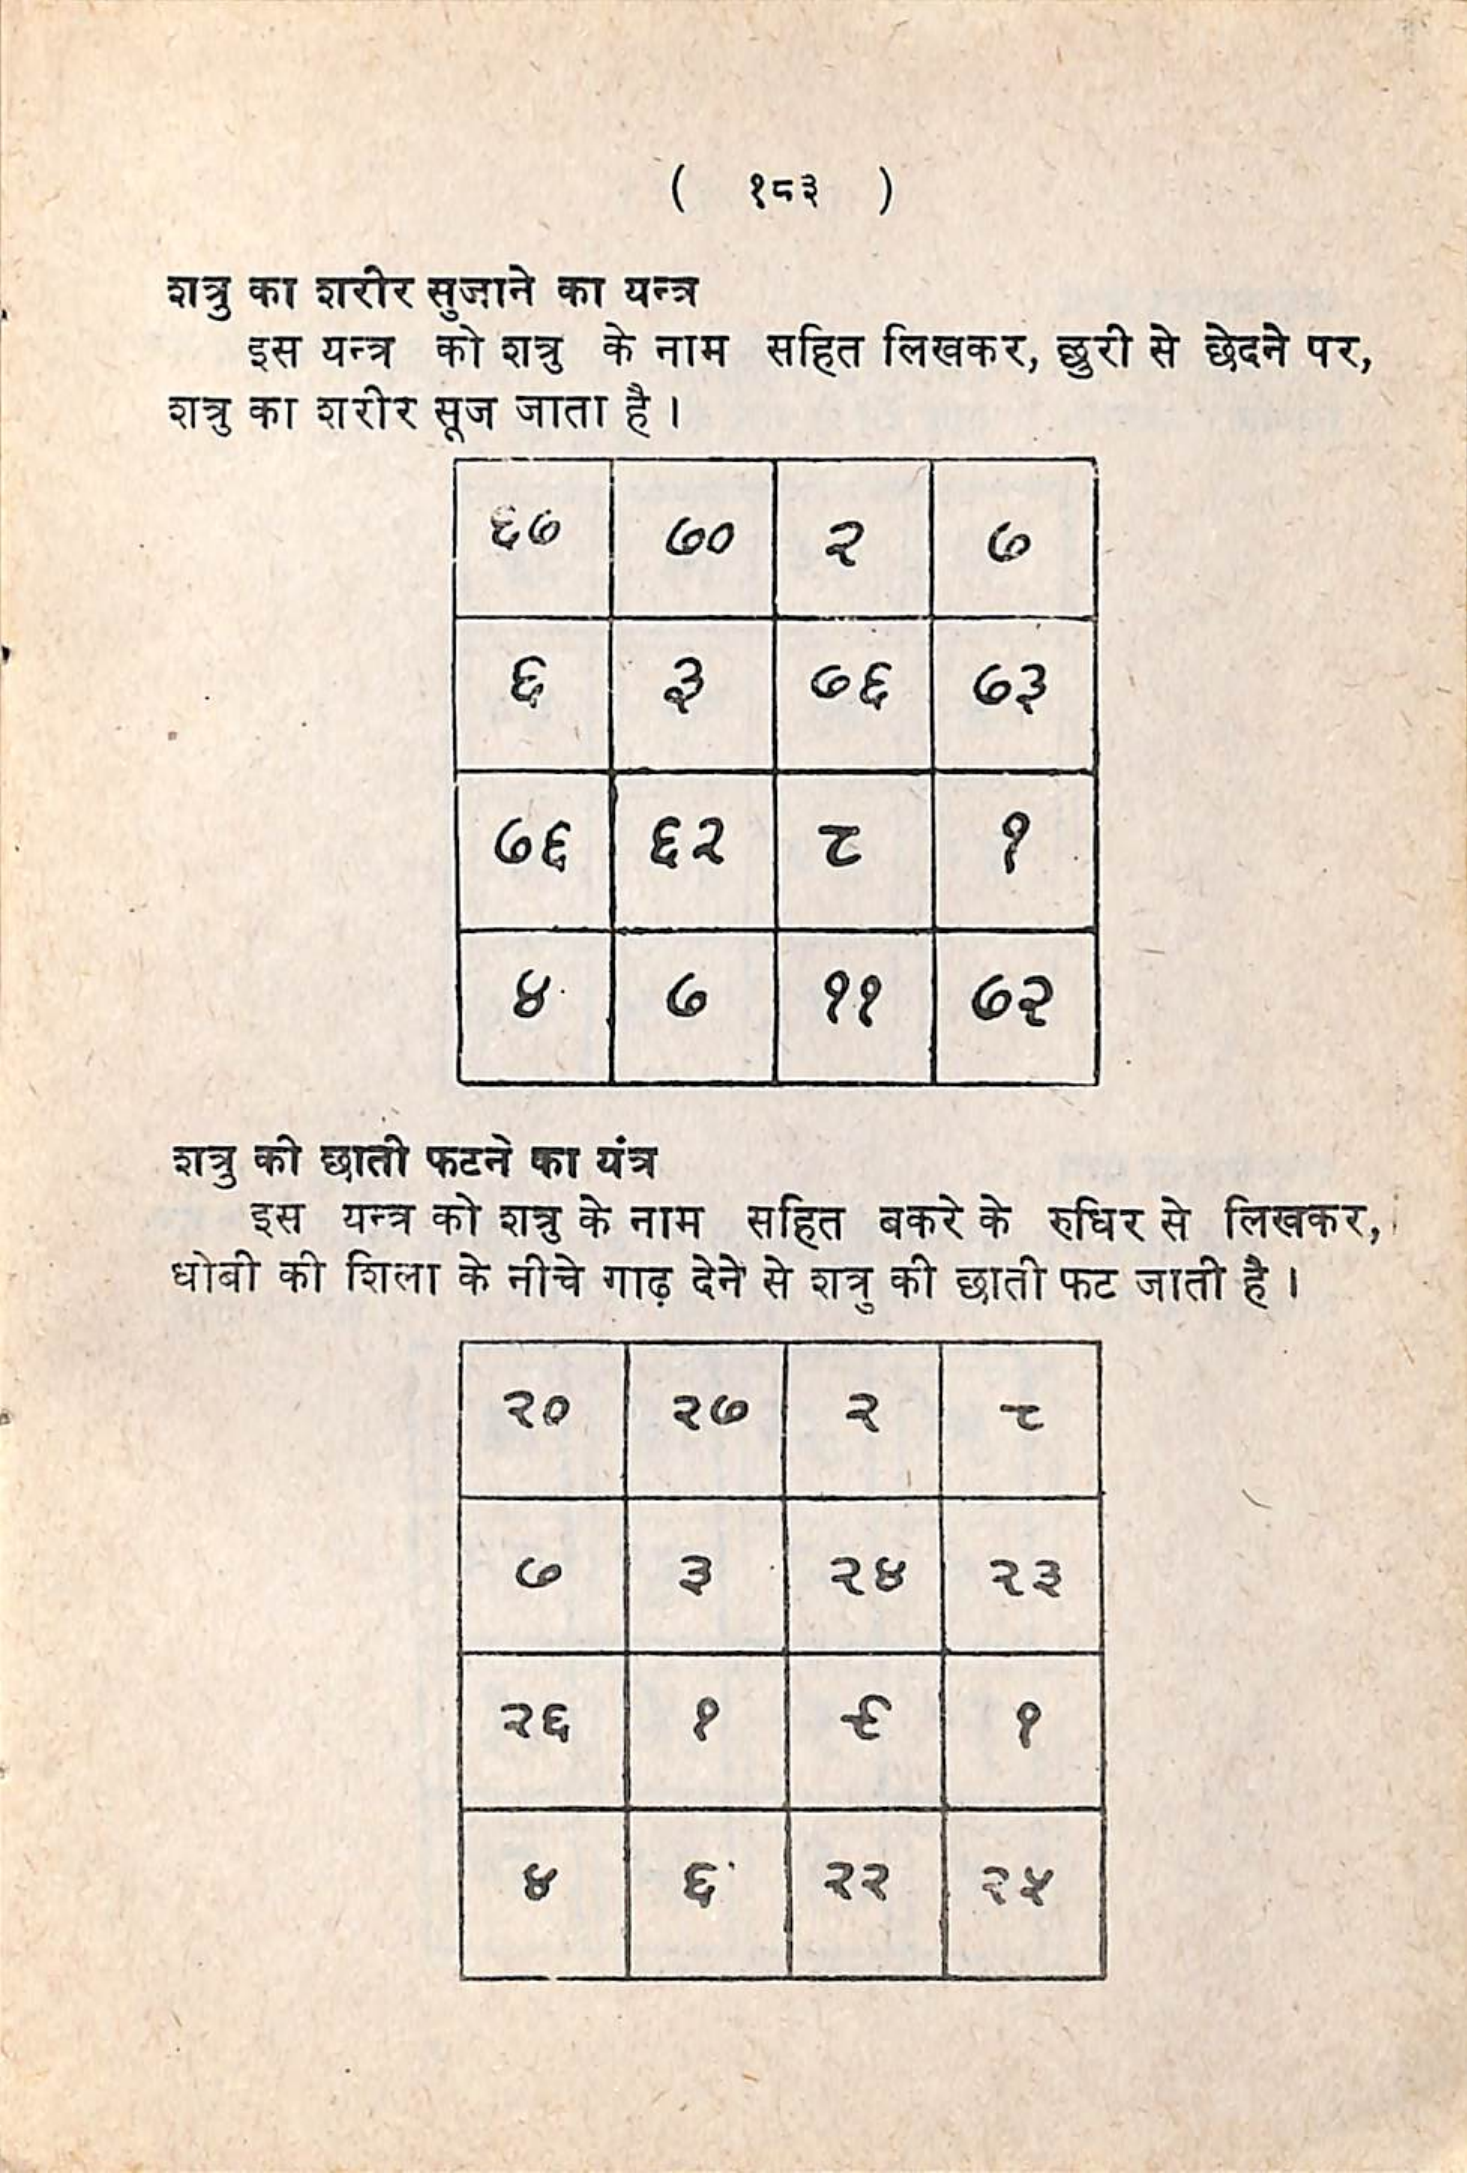 ( १८३ )
शत्रु का शरीर सुजाने का यन्त्र
इस यन्त्र को शत्रु के नाम सहित लिखकर, छुरी से छेदने पर,
शत्रु का शरीर सूज जाता है ।
६७ ७० २ ७
६ ३ ७६ ७३
७६ ६२ ८ १
४ ७ ११ ७२
शत्रु की छाती फटने का यंत्र
इस यन्त्र को शत्रु के नाम सहित बकरे के रुधिर से लिखकर,
धोबी की शिला के नीचे गाढ़ देने से शत्रु की छाती फट जाती है ।
२० २७ २ ८
७ ३ २४ २३
२६ १ ९ १
४ ६ २२ २५